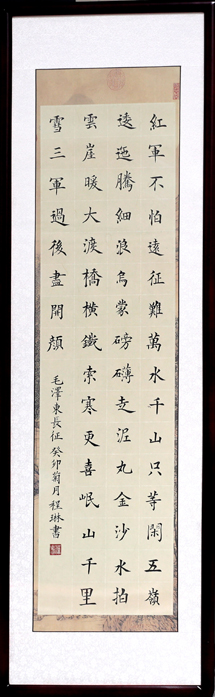 紅軍不怕遠征難萬水千山只等閑五嶺
逶迤騰細浪烏蒙磅礴走泥丸金沙水拍
雲崖暖大渡橋橫鐵索寒更喜岷山千里
雪三軍過後盡開顏
毛澤東長征癸卯菊月程琳書